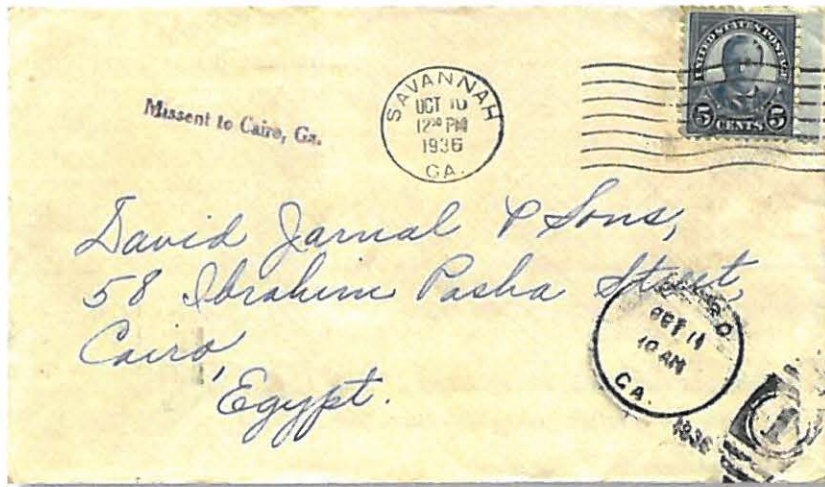 Missent to Cairo, Ga.
SAVANNAH
OCT 10
12 30 PM
1936
GA.
UNITED STATES POSTAGE
5 CENTS 5
David Jamal & Sons,
58 Ibrahim Pasha Street,
Cairo,
Egypt.
OCT 11
10 AM
GA.
1936
1